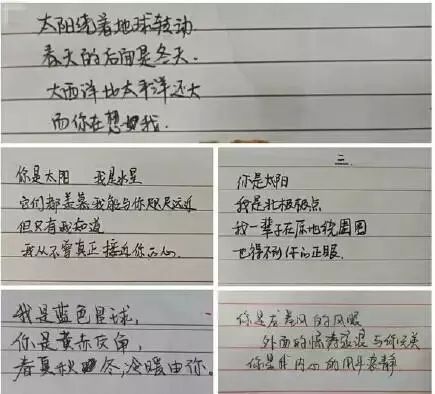 太阳绕着地球转动
春天的后面是冬天.
大西洋比太平洋还大
而你在想我.
你是太阳 我是水星
它们都羡慕我能与你咫尺近
但只有我知道
我从不曾真正接近你的心.
二.
你是太阳
我是北极极点
我一辈子在原地绕圈圈
也得不到你的正眼.
我是蓝色星球,
你是黄赤交角,
春夏秋冬,冷暖由你.
你是龙卷风的风眼
外面的惊涛骇浪与你无关
你是我内心的用